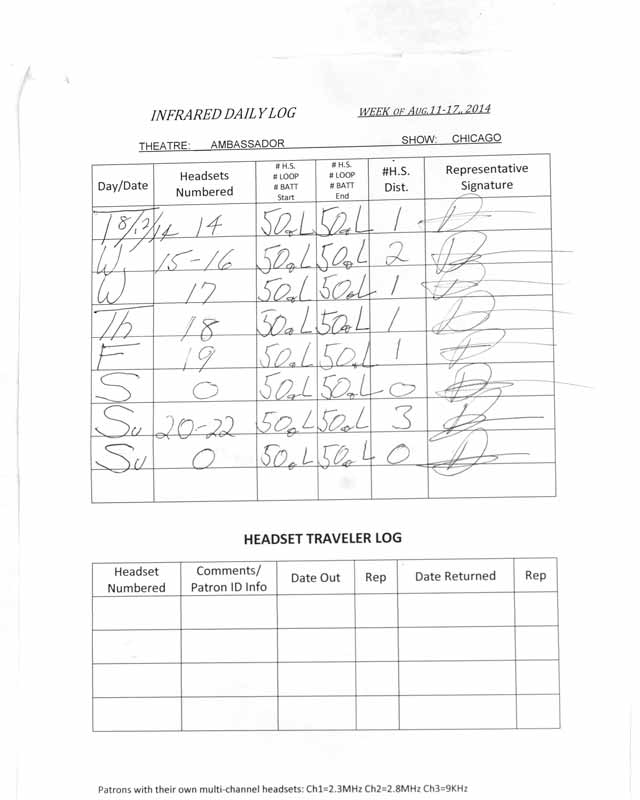 INFRARED DAILY LOG WEEK OF AUG.11-17,, 2014
THEATRE: AMBASSADOR SHOW: CHICAGO
Day/Date Headsets Numbered # H.S. # LOOP # BATT Start # H.S. # LOOP # BATT End #H.S. Dist. Representative Signature
T 8/12/14 14 50 L 50 L 1
W 15-16 50 L 50 L 2
W 17 50 L 50 L 1
Th 18 50 L 50 L 1
F 19 50 L 50 L 1
S 0 50 L 50 L 0
Su 20-22 50 L 50 L 3
Su 0 50 L 50 L 0
HEADSET TRAVELER LOG
Headset Numbered Comments/ Patron ID Info Date Out Rep Date Returned Rep
Patrons with their own multi-channel headsets: Ch1=2.3MHz Ch2=2.8MHz Ch3=9KHz